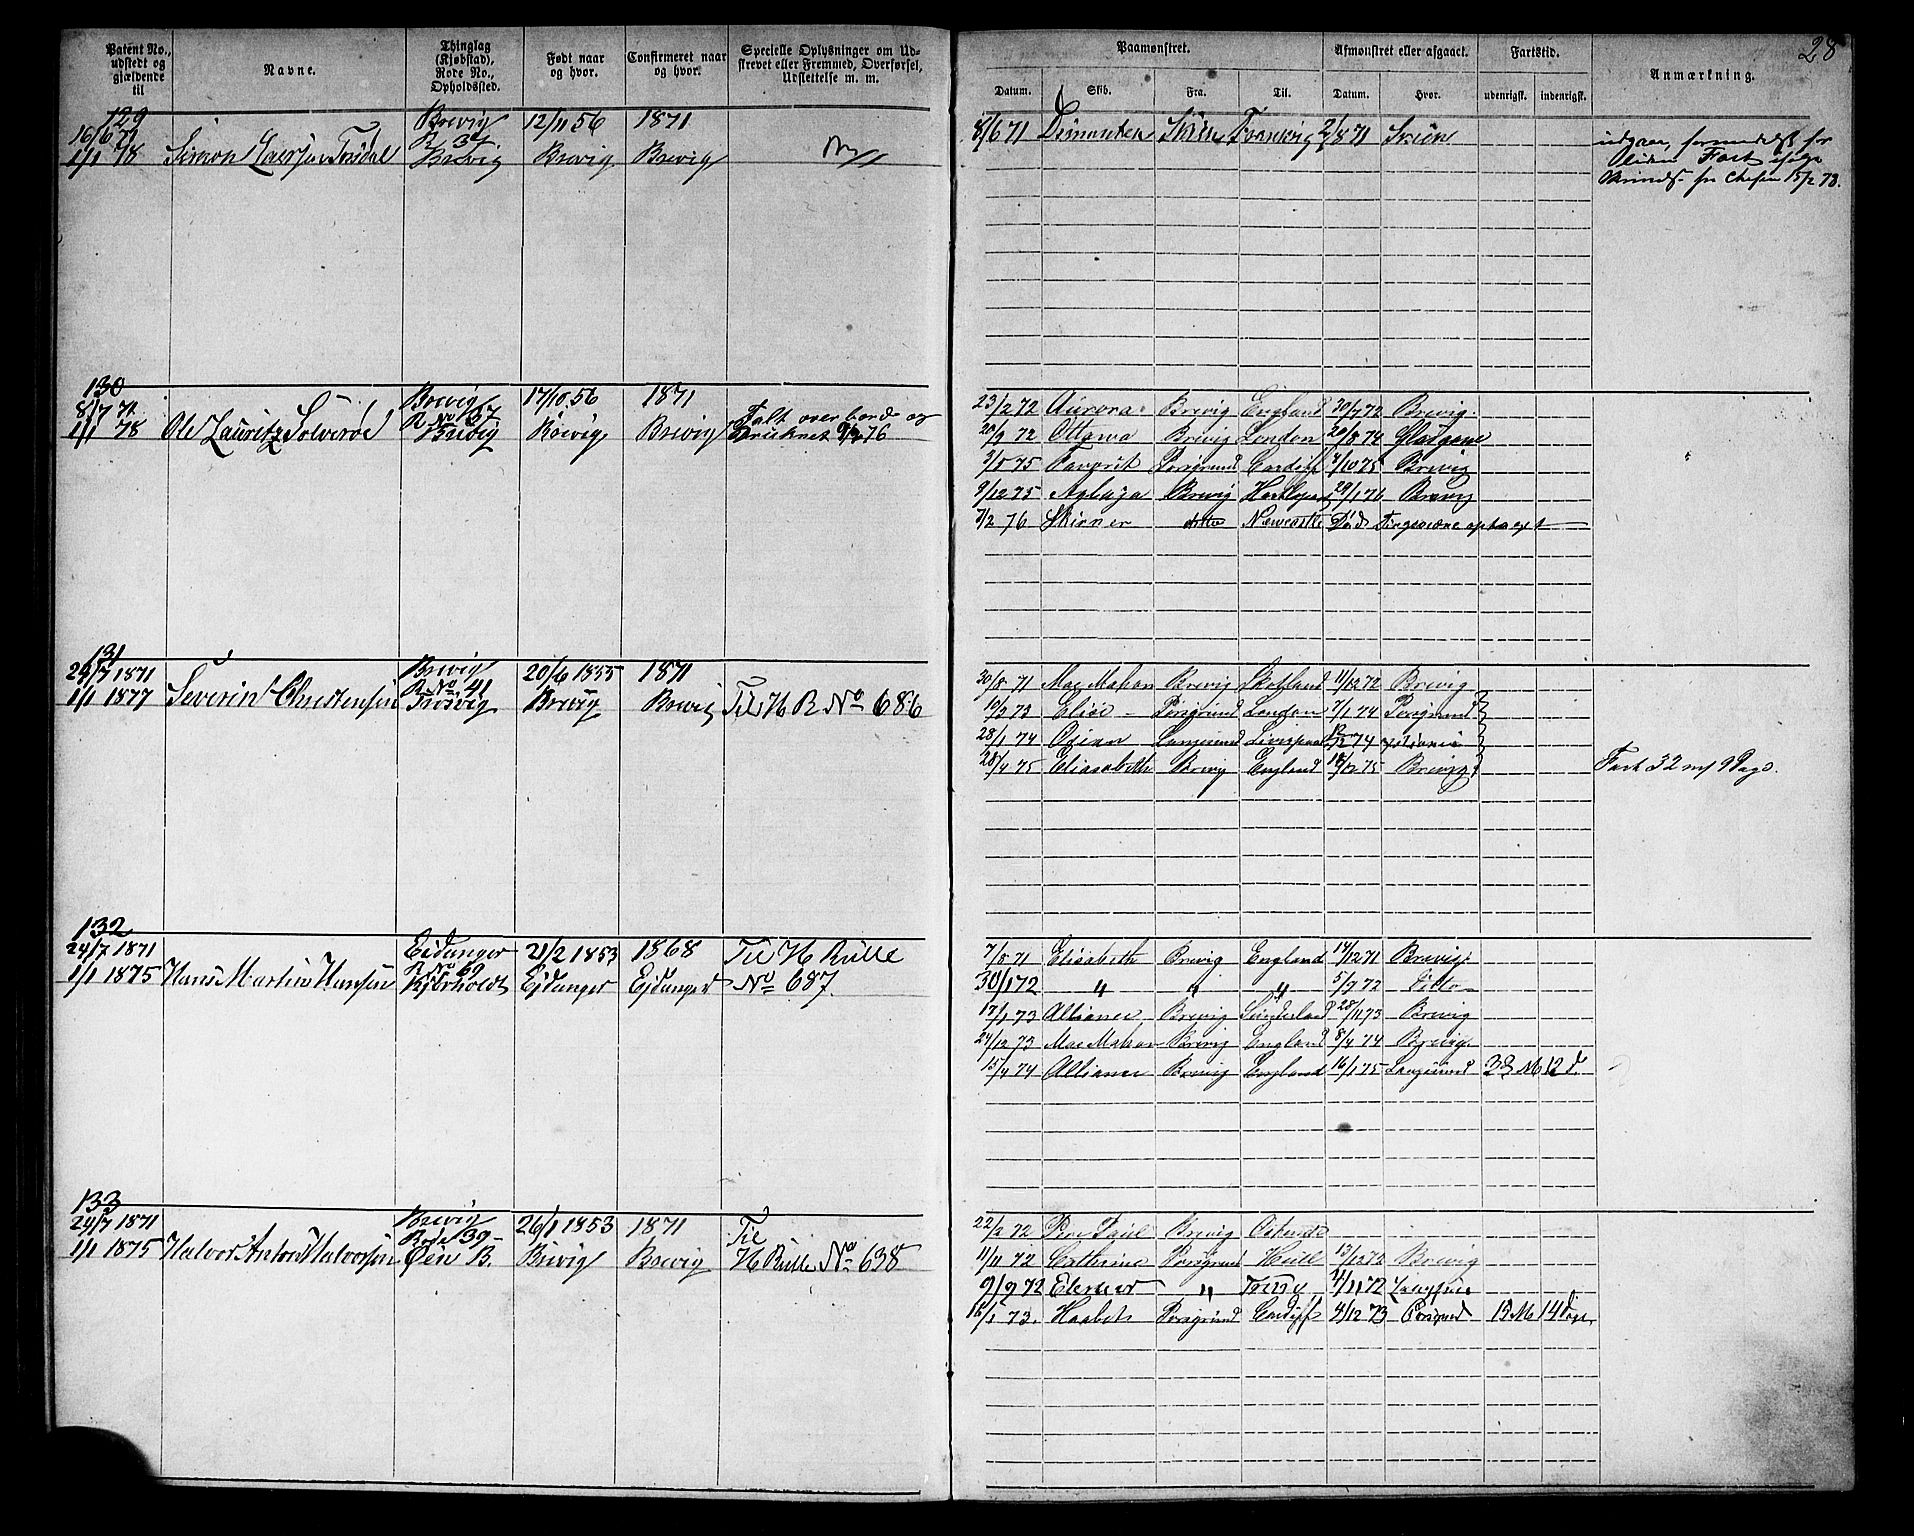 28
Patent No., udstedt og gjældende til
Navne.
Thinglag (Kjøbstad), Rode No., Opholdssted.
Født naar og hvor.
Confirmeret naar og hvor.
Specielle Oplysninger om Udskrevet eller Fremmed, Overførsel, Udslettelse m. m.
Paamønstret.
Afmønstret eller afgaaet.
Fartstid.
Anmærkning.
Datum. Skib. Fra. Til. Datum. Hvor. udenrigsk. indenrigsk.
129
16/6 71 Brevig 12/11 56 1871
R 37
1/1 78 Simon Brevig Brevig Brevig
8/6 71 Skien 2/8 71 Skien
udgaar, formedelst for
liden Fart ifølge
15/2 73.
130
8/7 71 Brevig 17/10 56 1871 Falt overbord og
R No 37
1/1 78 Ole Lauritz Solverød Brevig Brevig Brevig Druknet 76
23/2 72 Aurora Brevig England 30/7 72 Brevig.
20/9 72 Ottawa Brevig London 20/8 74
3/5 75 Porsgrund Cardiff 7/10 75 Brevig
9/12 75 Aglaja Brevig 29/1 76 Brevig
7/2 76 Skirner ditto Newcastle Død
131
29/7 1871 Brevig 20/6 1855 1871
R No 41
1/1 1877 Severin Christensen Trosvig Brevig Brevig Til H R No 686
30/8 71 Mac Mahon Brevig Skotland 11/12 72 Brevig
19/3 73 Elise Porsgrund London 7/1 74 Porsgrund
28/1 74 Langesund Liverpool
28/4 75 Eliasabeth Brevig England 18/12 75 Brevig
Fart 32 m 9 Dage.
132
24/7 1871 Eidanger 21/2 1853 1868 Til H Rulle
R No 69
1/1 1875 Hans Martin Hansen Bjørholdt Eidanger Eidanger No 687.
7/5 71 Elisabeth Brevig England 14/12 71 Brevig
30/1 72 " " " 5/9 72 Ditto
17/1 73 Alliance Brevig Sunderland 28/11 73 Brevig
24/12 73 Mac Mahon Brevig England 8/4 74 Brevig
15/4 74 Alliance Brevig England 16/1 75 Langesund 33 M 12 d.
133
24/7 1871 Brevig 26/1 1853 1871 Til
Rode 39
1/1 1875 Halvor Anton Halvorsen Øen B. Brevig Brevig H Rulle No 638
22/2 72 Brevig Ostende
11/4 72 Cathrine Porsgrund Hull 13/12 72 Brevig
9/9 72 " 4/11 72
16/5 73. Haabet Porsgrund Cardiff 4/12 73 Porsgrund 15 M 14 Dage